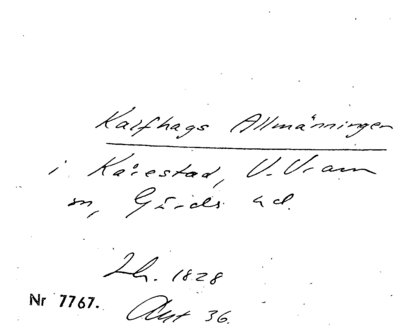 Kalfhags Allmänningen
i Kårestad, V. Vram
sn, Gärds hd.
Lh. 1828
Nr 7767.
Akt 36.